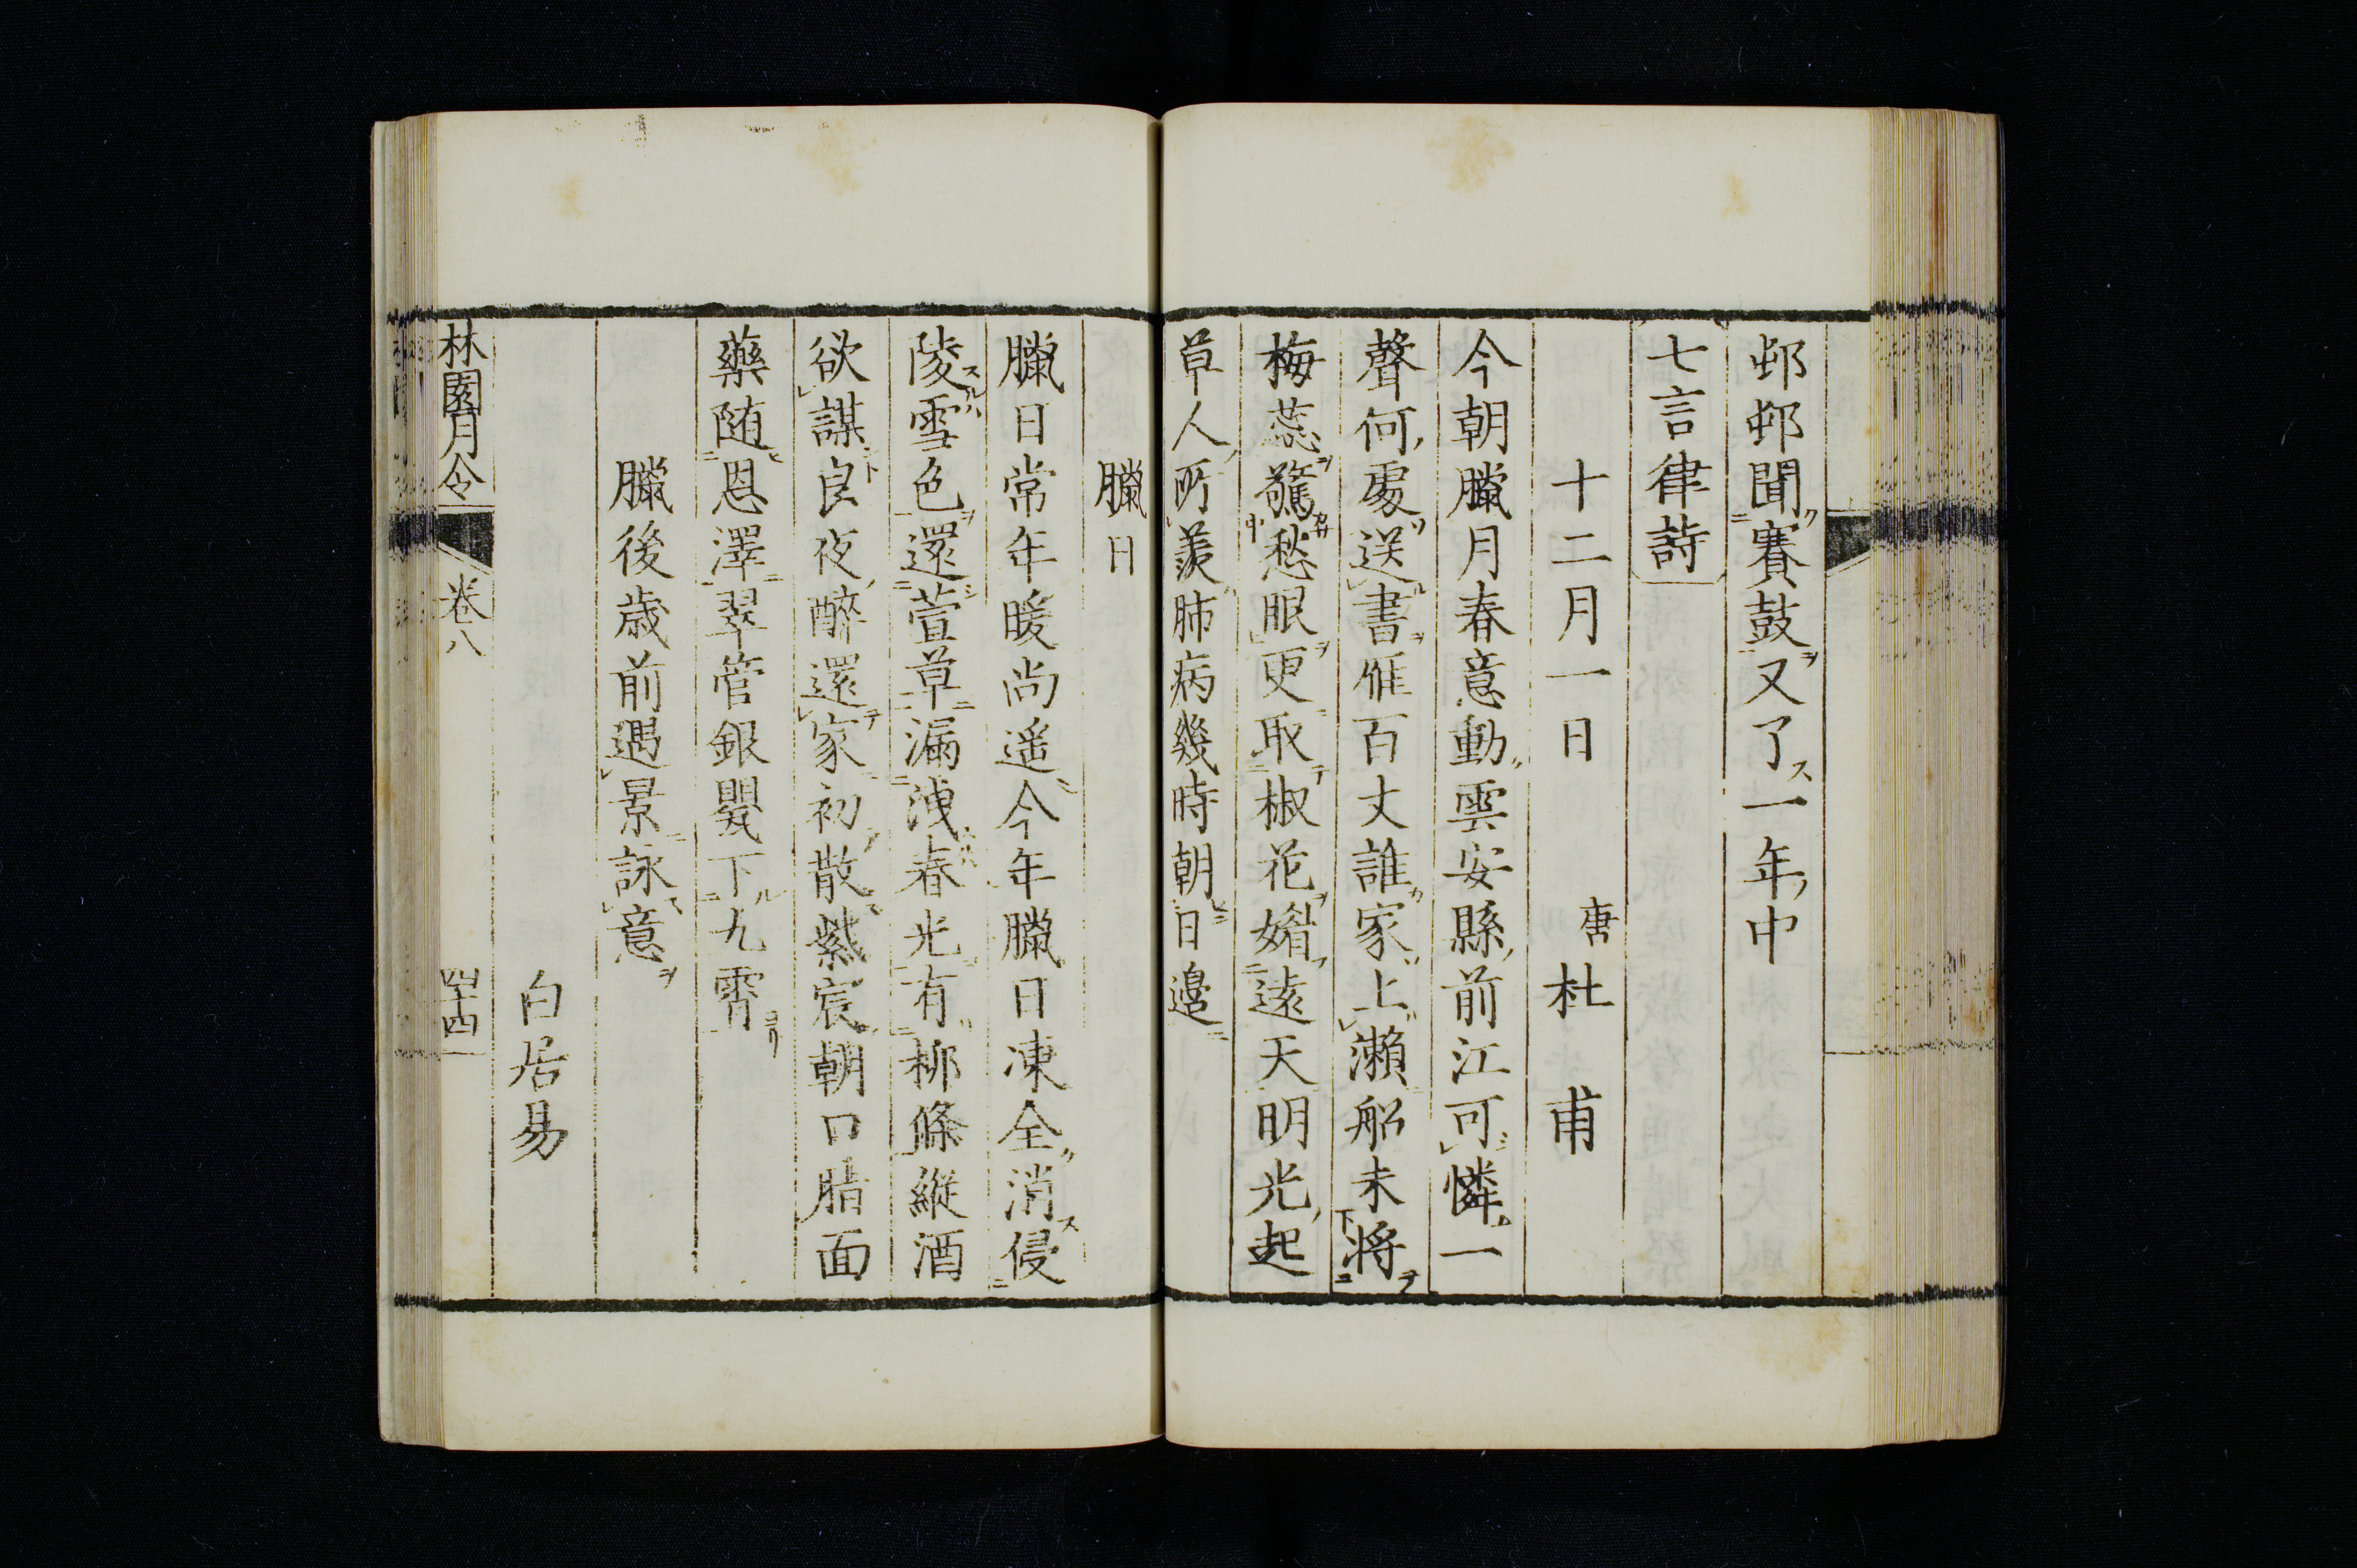 邨邨聞賽鼓又了一年中
七言律詩
十二月一日 唐 杜甫
今朝臘月春意動雲安縣前江可憐一
聲何處送書雁百丈誰家上瀨船未將
梅蕊驚愁眼更取椒花媚遠天明光起
草人所羨肺病幾時朝日邊
臘日
臘日常年暖尚遥今年臘日凍全消侵
陵雪色還萱草漏洩春光有柳條縱酒
欲謀良夜醉還家初散紫宸朝口脂面
藥随恩澤翠管銀罌下九霄
臘後歳前遇景詠意
白居易
林園月令 卷八 四十四